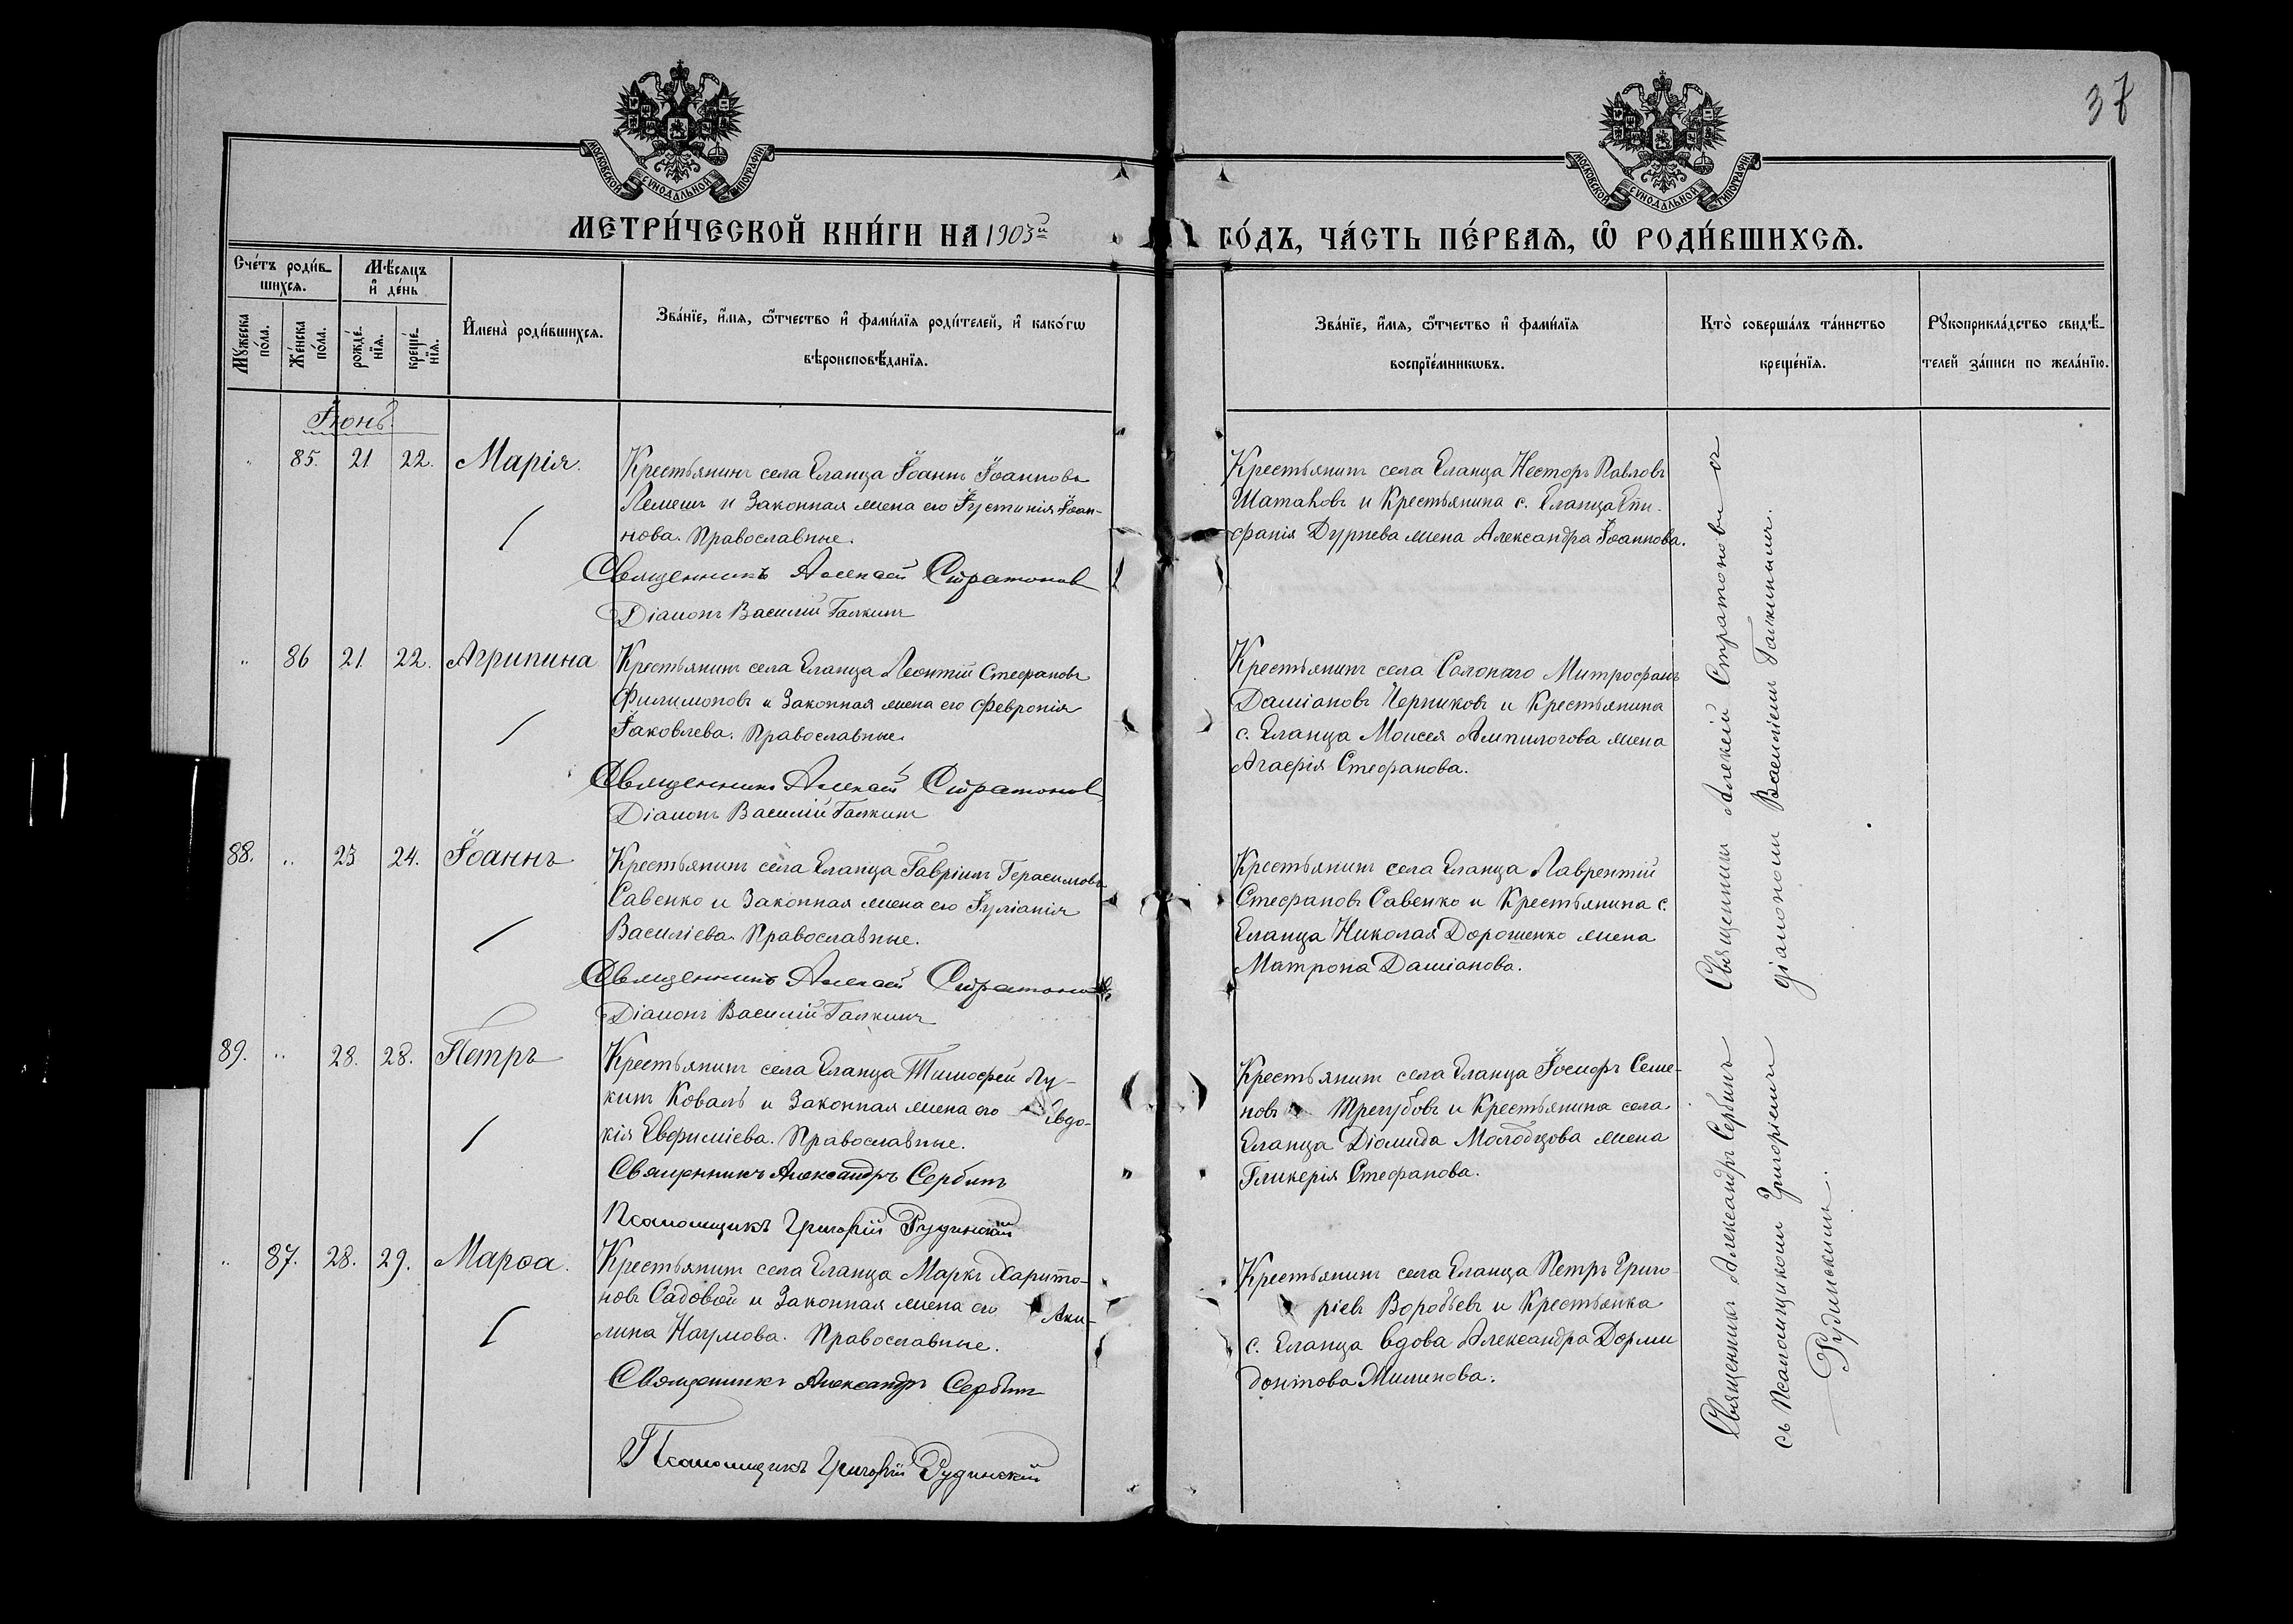 37
МОСКОВСКОЙ СѴНОДАЛЬНОЙ ТИПОГРАФІИ
МОСКОВСКОЙ СѴНОДАЛЬНОЙ ТИПОГРАФІИ
МЕТРИ́ЧЕСКОЙ КНИ́ГИ НА 1903й
ГО́ДЪ, ЧА́СТЬ ПЕ́РВАѦ, Ѡ РОДИ́ВШИХСѦ.
Счéтъ роди́в-
шихсѧ.
Мꙋ́жеска
по́ла.
Же́нска
по́ла.
Мѣ́сѧцъ
и҆ де́нь
рожде́-
нїѧ.
креще́-
нїѧ.
И҆мена̀ роди́вшихсѧ.
Зва́нїе, и҆́мѧ, ѻ҆́тчество и҆ фами́лїѧ роди́телей, и҆ како́гѡ
вѣроисповѣ́данїѧ.
Зва́нїе, и҆́мѧ, ѻ҆́тчество и҆ фами́лїѧ
воспрїе́мникѡвъ.
Кто̀ соверша́лъ та́инство
креще́нїѧ.
Рꙋкоприкла́дство свидѣ́-
телей за́писи по жела́нїю.
Іюнь.
" 85. 21 22. Марія.
Крестьянинъ села Еланца Іоаннъ Іоанновъ
Лемешъ и Законная жена его Іустинія Іоан-
нова. Православные.
Священникъ Алексей Стратонов
Діаконъ Василій Галкинъ
Крестьянинъ села Еланца Несторъ Павловъ
Шатаковъ и Крестьянина с. Еланца Епи-
фанія Дурнева жена Александра Іоаннова.
" 86 21. 22. Агрипина
Крестьянинъ села Еланца Леонтій Стефановъ
Филимоновъ и Законная жена его Февронія
Іаковлева. Православные.
Священникъ Алексей Стратонов
Діаконъ Василій Галкинъ
Крестьянинъ села Солонаго Митрофанъ
Даміановъ Черниковъ и Крестьянина
с. Еланца Моисея Ампилогова жена
Агафія Стефанова.
88. " 23 24. Іоаннъ
Крестьянинъ села Еланца Гавріилъ Герасимовъ
Савенко и Законная жена его Іуліанія
Василіева. Православные.
Священникъ Алексей Стратонов
Діаконъ Василій Галкинъ
Крестьянинъ села Еланца Лаврентій
Стефановъ Савенко и Крестьянина с.
Еланца Николая Дорошенко жена
Матрона Даміанова.
89. " 28. 28. Петръ
Крестьянинъ села Еланца Тимофей Лу-
кинъ Коваль и Законная жена его Евдо-
кія Евфиміева. Православные.
Священникъ Александръ Сербинъ
Псаломщикъ Григорій Рудинскій
Крестьянинъ села Еланца Іосифъ Семе-
новъ Трегубовъ и Крестьянина села
Еланца Діомида Молодцова жена
Гликерія Стефанова.
" 87. 28. 29. Марѳа.
Крестьянинъ села Еланца Маркъ Харито-
новъ Садовой и Законная жена его Аки-
лина Наумова. Православные.
Священникъ Александръ Сербинъ
Псаломщикъ Григорій Рудинскій
Крестьянинъ села Еланца Петръ Григо-
ріевъ Воробьевъ и Крестьянка
с. Еланца вдова Александра Дорми
донтова
Священникъ Алексей Стратоновъ съ
діакономъ Василіемъ Галкинымъ.
Священникъ Александръ Сербинъ
съ Псаломщикомъ Григоріемъ
Рудинскимъ.